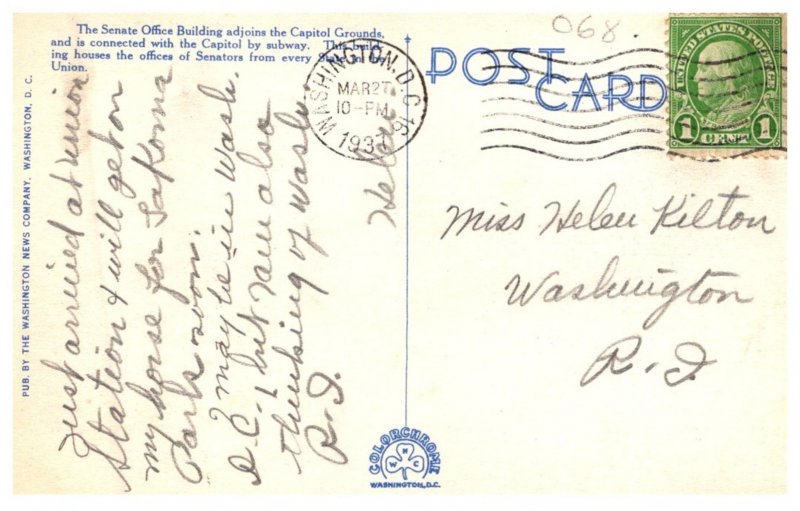 The Senate Office Building adjoins the Capitol Grounds,
and is connected with the Capitol by subway. This build-
ing houses the offices of Senators from every State in the
Union.
PUB. BY THE WASHINGTON NEWS COMPANY, WASHINGTON, D. C.
Just arrived at union
Station & will get on
my horse for Takoma
Park soon.
I may be in Wash.
D.C. but I am also
thinking of Wash.
R.I.
WASHINGTON, D.C.
MAR 27
10-PM
193
POST
CARD
068.
UNITED STATES POSTAGE
1 CENT 1
Miss Helen Kilton
Washington
R.I.
COLORCHROME
N
W C
WASHINGTON, D.C.